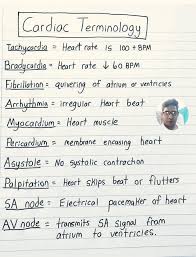 Cardiac Terminology
Tachycardia = Heart rate is 100 + BPM
Bradycardia = Heart rate ↓ 60 BPM
Fibrillation = quivering of atrium or ventricles
Arhythmia = irregular Heart beat
Myocardium = Heart muscle
Pericardium = membrane encasing heart
Asystole = No systolic contraction
Palpitation = Heart skips beat or flutters
SA node = Electrical pacemaker of heart
AV node = transmits SA signal from
atrium to ventricles.